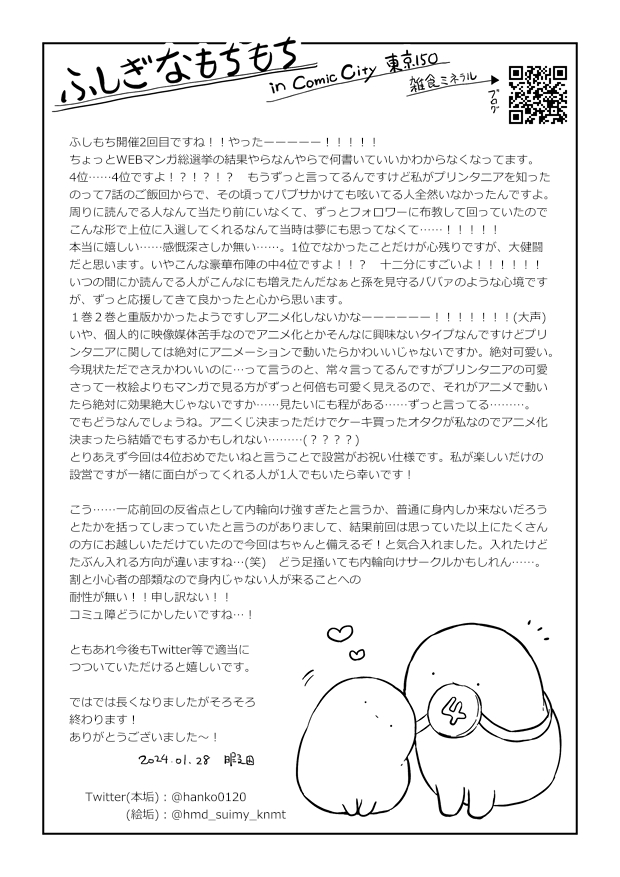 ふしぎなもちもち
in Comic City 東京150
雑食ミネラル
ブログ
ふしもち開催2回目ですね！！やったーーーーー！！！！！
ちょっとWEBマンガ総選挙の結果やらなんやらで何書いていいかわからなくなってます。
4位……4位ですよ！？！？！？　もうずっと言ってるんですけど私がプリンタニアを知った
のって7話のご飯回からで、その頃ってパブサかけても呟いてる人全然いなかったんですよ。
周りに読んでる人なんて当たり前にいなくて、ずっとフォロワーに布教して回っていたので
こんな形で上位に入選してくれるなんて当時は夢にも思ってなくて……！！！！！
本当に嬉しい……感慨深さしか無い……。1位でなかったことだけが心残りですが、大健闘
だと思います。いやこんな豪華布陣の中4位ですよ！！？　十二分にすごいよ！！！！！！
いつの間にか読んでる人がこんなにも増えたんだなぁと孫を見守るババァのような心境です
が、ずっと応援してきて良かったと心から思います。
１巻２巻と重版かかったようですしアニメ化しないかなーーーーーー！！！！！！！(大声)
いや、個人的に映像媒体苦手なのでアニメ化とかそんなに興味ないタイプなんですけどプリ
ンタニアに関しては絶対にアニメーションで動いたらかわいいじゃないですか。絶対可愛い。
今現状ただでさえかわいいのに…って言うのと、常々言ってるんですがプリンタニアの可愛
さって一枚絵よりもマンガで見る方がずっと何倍も可愛く見えるので、それがアニメで動い
たら絶対に効果絶大じゃないですか……見たいにも程がある……ずっと言ってる………。
でもどうなんでしょうね。アニくじ決まっただけでケーキ買ったオタクが私なのでアニメ化
決まったら結婚でもするかもしれない………(？？？？)
とりあえず今回は4位おめでたいねと言うことで設営がお祝い仕様です。私が楽しいだけの
設営ですが一緒に面白がってくれる人が1人でもいたら幸いです！
こう……一応前回の反省点として内輪向け強すぎたと言うか、普通に身内しか来ないだろう
とたかを括ってしまっていたと言うのがありまして、結果前回は思っていた以上にたくさん
の方にお越しいただけていたので今回はちゃんと備えるぞ！と気合入れました。入れたけど
たぶん入れる方向が違いますね…(笑)　どう足掻いても内輪向けサークルかもしれん……。
割と小心者の部類なので身内じゃない人が来ることへの
耐性が無い！！申し訳ない！！
コミュ障どうにかしたいですね…！
ともあれ今後もTwitter等で適当に
つついていただけると嬉しいです。
ではでは長くなりましたがそろそろ
終わります！
ありがとうございました～！
2024.01.28
4
Twitter(本垢)：@hanko0120
(絵垢)：@hmd_suimy_knmt